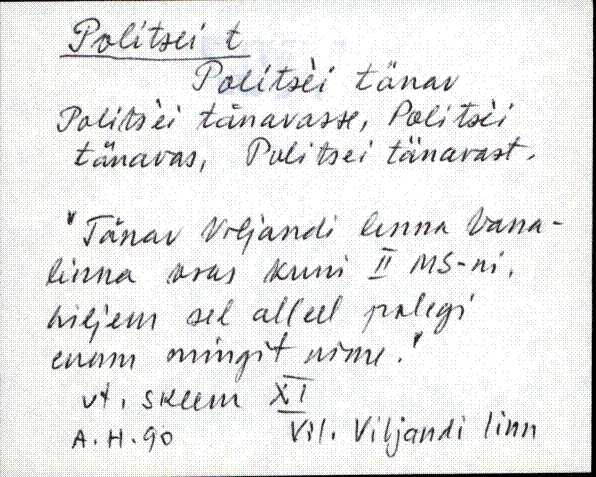 Politsei t
Politsèi tänav
Politsèi tänavasse, Politsèi
tänavas, Politsei tänavast.
"Tänav Viljandi linna Vana-
linna osas kuni II MS-ni,
hiljem sel alleel polegi
enam mingit nime."
vt. skeem XI
A.H.90 Vil. Viljandi linn